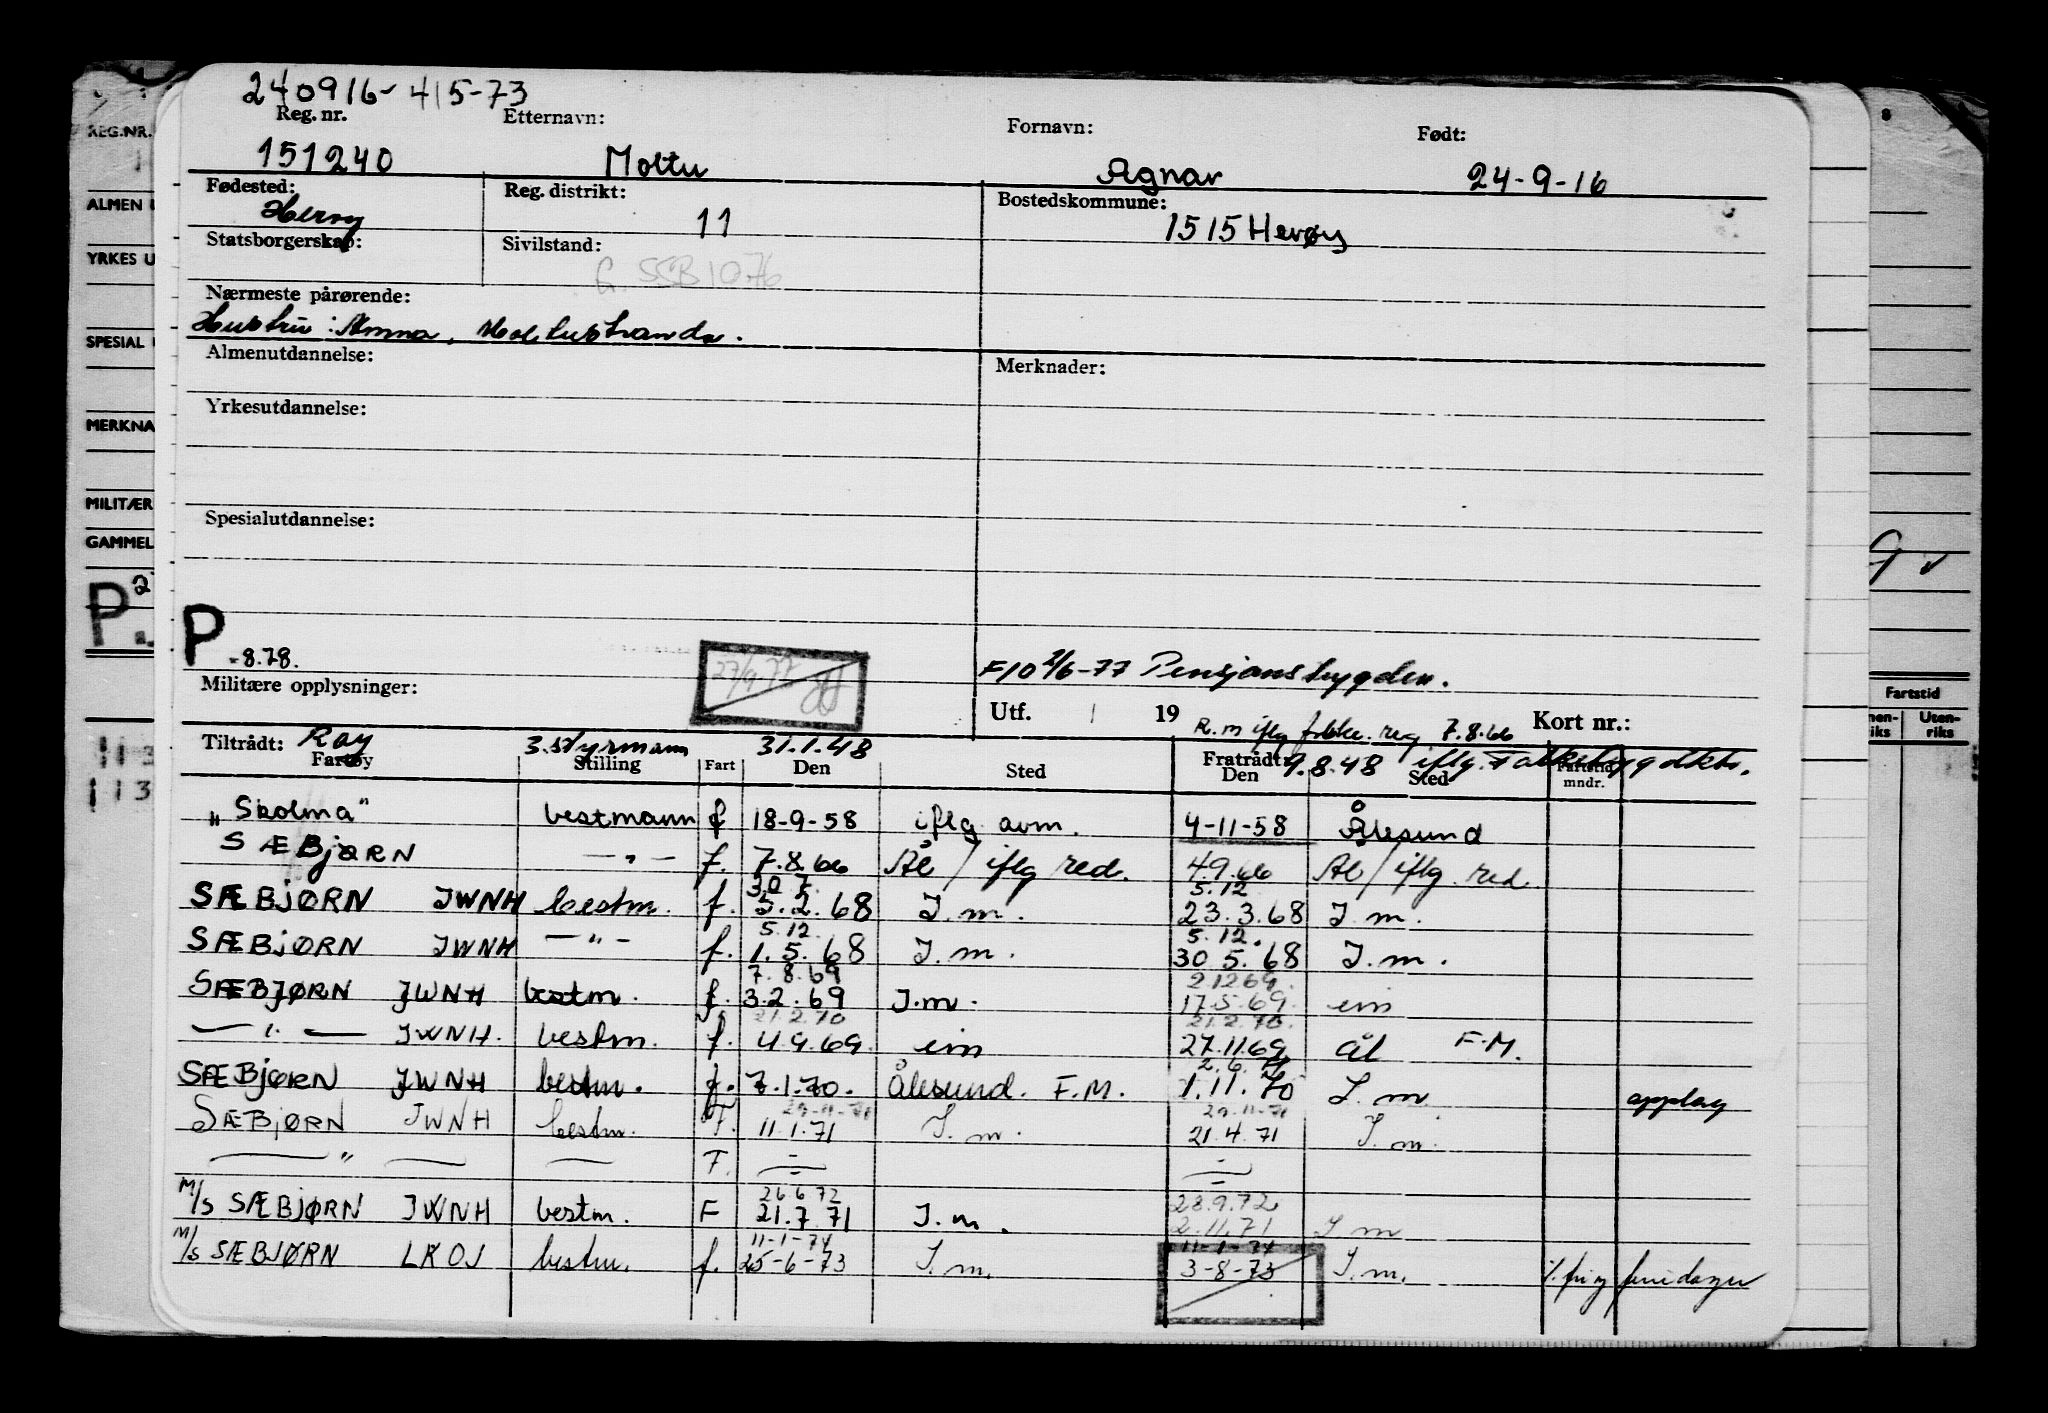 240916-41573
Reg. nr. Etternavn: Fornavn: Født:
151240 Moltu Agnar 24-9-16
Fødested: Reg. distrikt: Bostedskommune:
Herøy 11 1515 Herøy
Statsborgerskap: Sivilstand:
G. SSB 1076
Nærmeste pårørende:
Hustru: Anna, Moltustranda.
Almenutdannelse: Merknader:
Yrkesutdannelse:
Spesialutdannelse:
P -8.78.
27/9-77
F10 2/6-77 Pensjonstrygden.
Militære opplysninger: Utf. / 19 Kort nr.:
R.m iflg. fiske. reg 7.8.66
Tiltrådt: Ray 3. styrmann 31.1.48 Fratrådt: 9.8.48 iflg.
Fartøy Stilling Fart Den Sted Den Sted Fartstid mndr.
„Skolma" bestmann f 18-9-58 iflg avm. 4-11-58 Ålesund
SÆBJØRN — " — f. 7.8.66 Ål / iflg red. 4.9.66 Ål / iflg. red
30.7. 5.12
SÆBJØRN JWNH bestm. f. 5.2.68 I.m. 23.3.68 I.m.
5.12. 5.12.
SÆBJØRN JWNH — " — f. 1.5.68 I.m. 30 5.68 I.m.
7.8.69 2.12.69.
SÆBJØRN JWNH bestm. f. 3.2.69 I.m. 17.5.69 eim
21.2.70 21.2.70.
— " — JWNH. bestm. f. 4.9.69 eim 27.11.69 ål F.M.
SÆBJØRN JWNH bestm. f. 7.1.70. Ålesund. F.M. 1.11.70 I.m. opplag
SÆBJØRN JWNH bestm. F. 11.1.71 I.m. 21.4.71 I.m.
— " — — F. — —
26 6 72 28.9.72
M/S SÆBJØRN JWNH bestm. F 21.7.71 I.m. 2.11.71 I m
11-1-74 11-1-74
M/S SÆBJØRN LKOJ bestm. f. 25-6-73 I.m. 3-8-73 I.m.
REG.NR.
ALMEN U
YRKES U
SPESIAL
MERKNA
MILITÆR
GAMMEL
P. 2
Fartstid
Uten-
riks